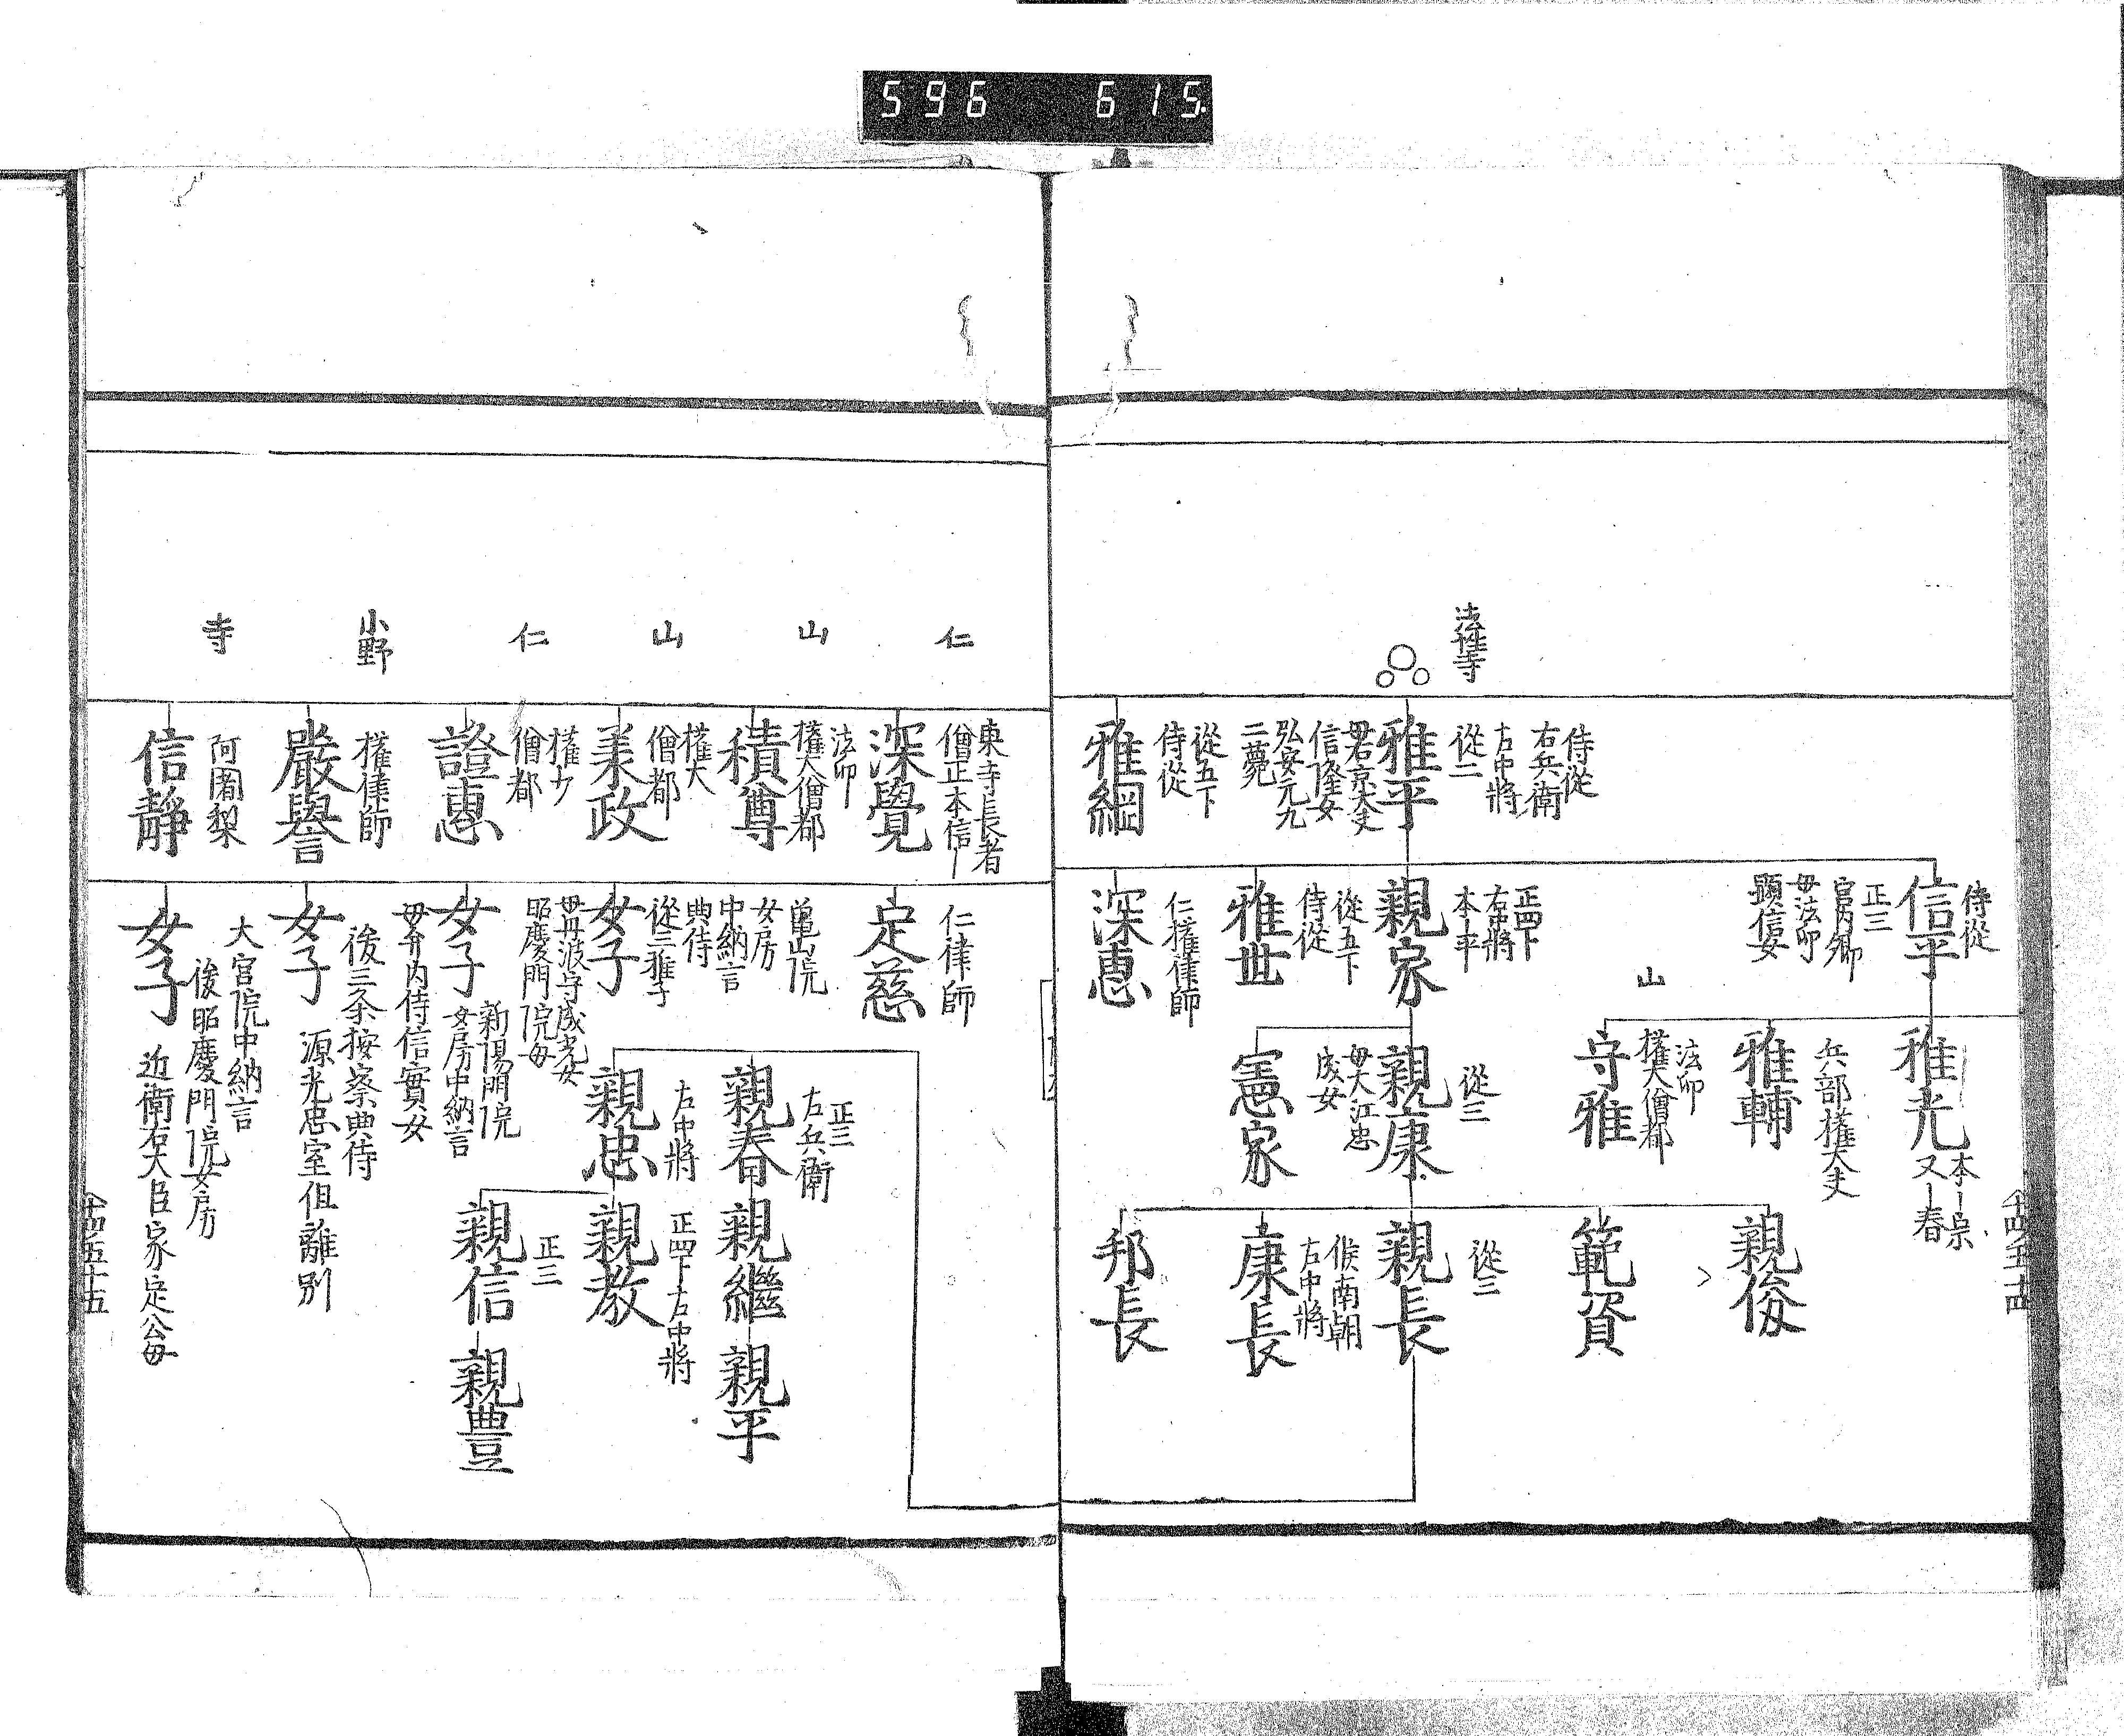 596 615
法性寺
侍從
右兵衛
左中將
從二
雅平
母右京大夫
信隆女
弘安元九
二薨
從五下
侍從
雅綱
侍從
信平
正三
宮内卿
母法印
顕信女
正四下
右中將
本ー平
親家
從五下
侍從
雅世
仁權律師
深惠
雅光
本ー宗
又ー春
兵部權大夫
雅輔
山
法印
權大僧都
守雅
從三
親康
母大江忠
成女
憲家
親俊
範資
從三
親長
候南朝
左中將
康長
邦長
仁
東寺長者
僧正本信ー
深覺
山
法印
權大僧都
積尊
山
權大
僧都
業政
仁
權少
僧都
證惠
小野
權律師
嚴譽
寺
阿闍梨
信靜
仁律師
定慈
亀山院
女房
中納言
典侍
從三雅子
女子
母丹波守成光女
昭慶門院母
新陽門院
女房中納言
女子
母弁内侍信實女
後三条按察典侍
女子
源光忠室但離別
大宮院中納言
後昭慶門院女房
女子
近衛右大臣家定公母
正三
右兵衛
親春
親繼
親平
左中將
親忠
正四下右中將
親教
正三
親信
親豊